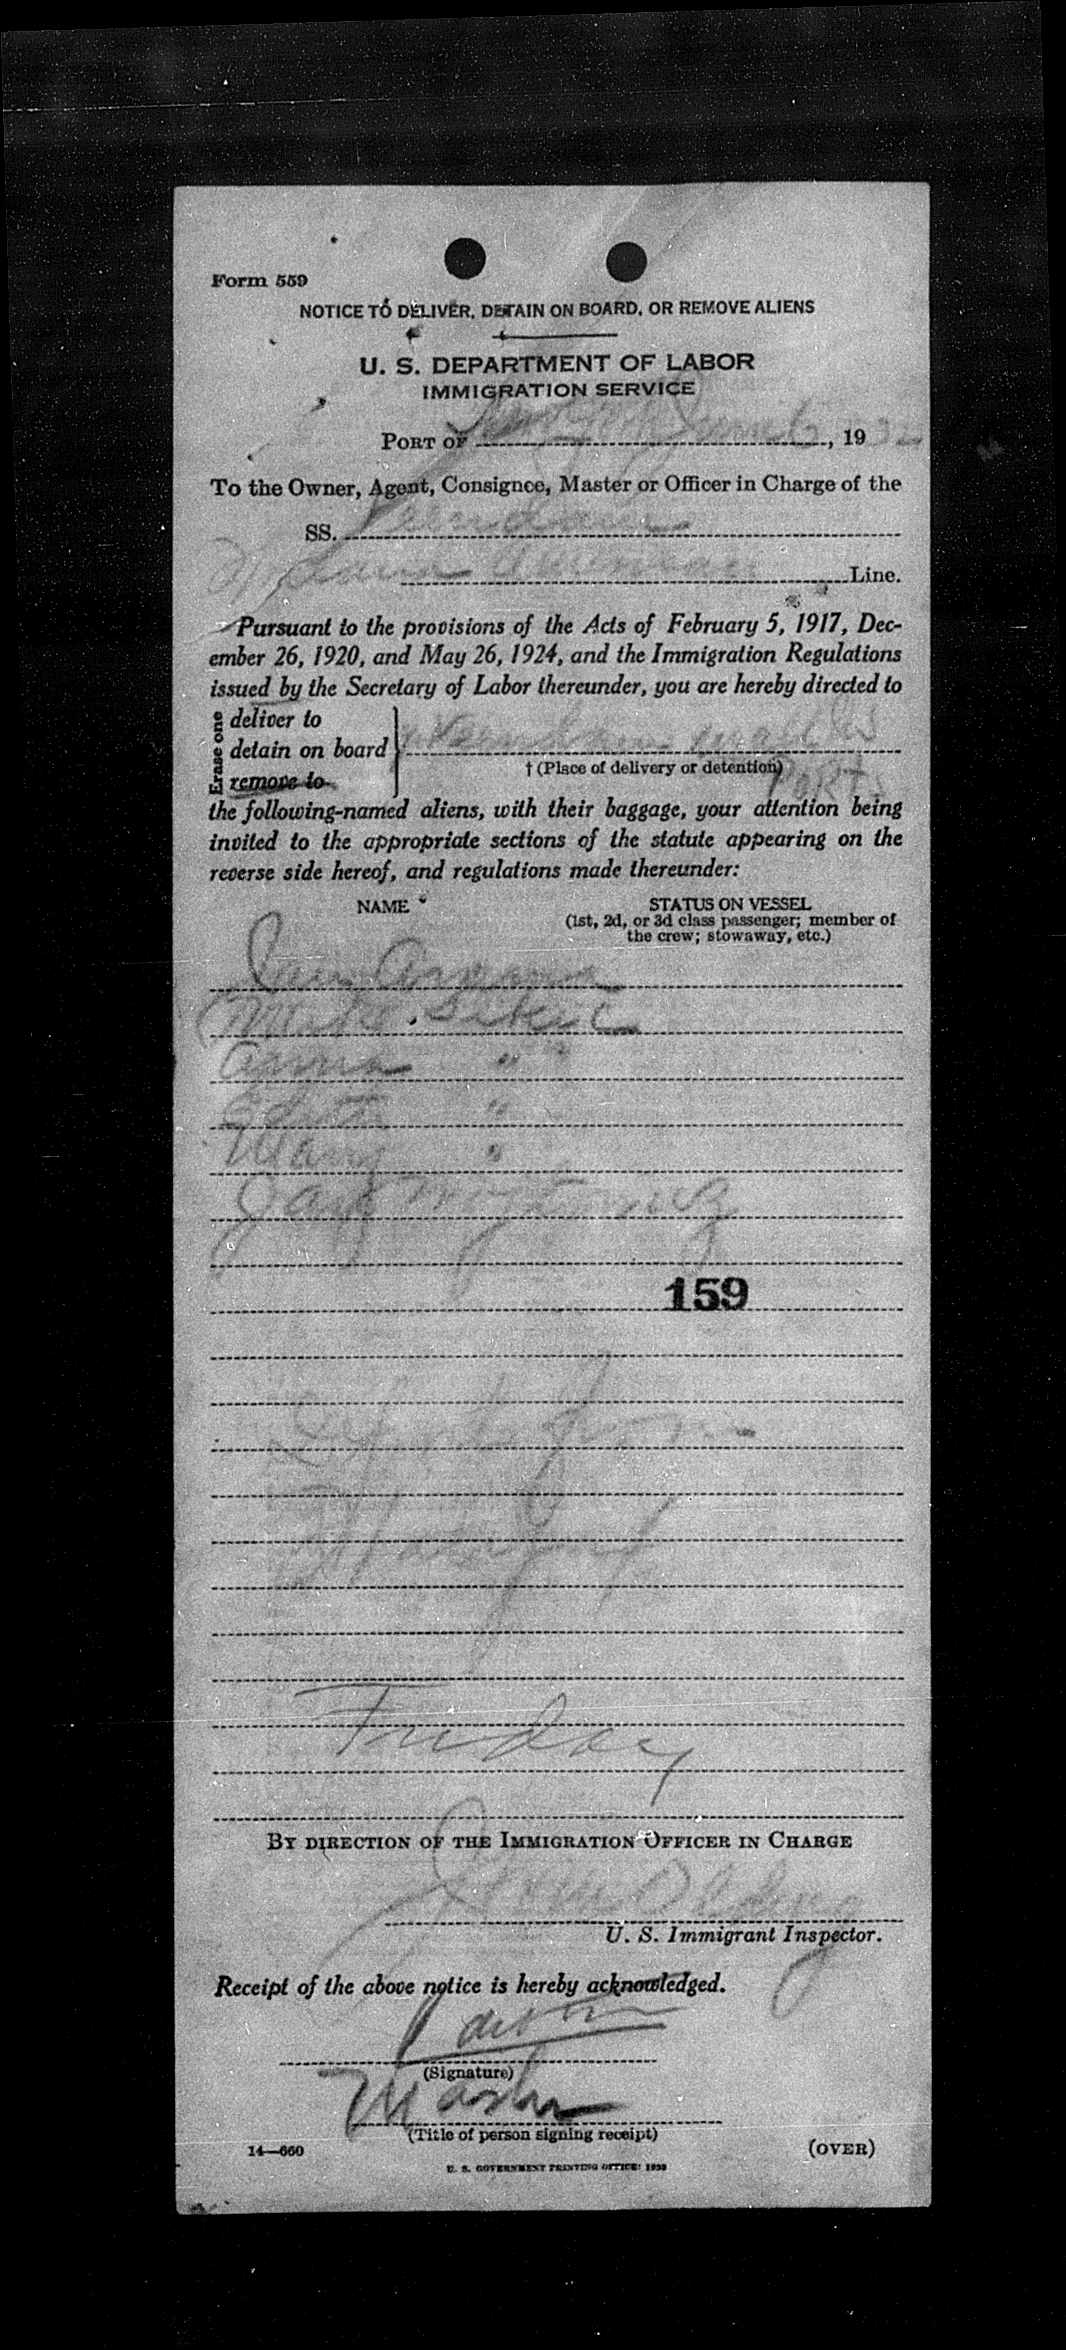 Form 559
NOTICE TO DELIVER, DETAIN ON BOARD, OR REMOVE ALIENS
U. S. DEPARTMENT OF LABOR
IMMIGRATION SERVICE
PORT OF New York June 6, 1932
To the Owner, Agent, Consignee, Master or Officer in Charge of the
SS. Veendam
American Line.
Pursuant to the provisions of the Acts of February 5, 1917, Dec-
ember 26, 1920, and May 26, 1924, and the Immigration Regulations
issued by the Secretary of Labor thereunder, you are hereby directed to
Erase one
deliver to
detain on board Veendam at all US
remove to
† (Place of delivery or detention)
PORTS
the following-named aliens, with their baggage, your attention being
invited to the appropriate sections of the statute appearing on the
reverse side hereof, and regulations made thereunder:
NAME STATUS ON VESSEL
(1st, 2d, or 3d class passenger; member of
the crew; stowaway, etc.)
Anna "
Edith "
Mary "
159
Friday
BY DIRECTION OF THE IMMIGRATION OFFICER IN CHARGE
U. S. Immigrant Inspector.
Receipt of the above notice is hereby acknowledged.
(Signature)
Master
(Title of person signing receipt)
14—660 (OVER)
U. S. GOVERNMENT PRINTING OFFICE: